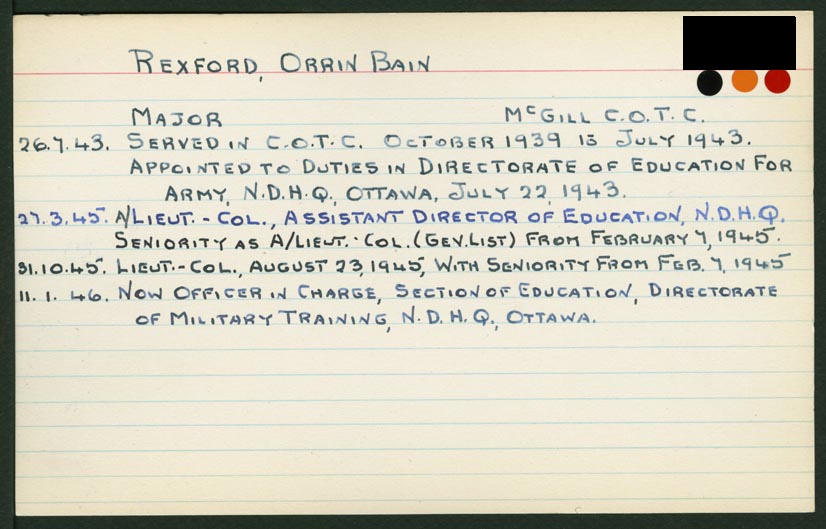 REXFORD, ORRIN BAIN
MAJOR McGILL C.O.T.C.
26.7.43. SERVED IN C.O.T.C. OCTOBER 1939 to JULY 1943.
APPOINTED TO DUTIES IN DIRECTORATE OF EDUCATION FOR
ARMY, N.D.H.Q., OTTAWA, JULY 22, 1943.
27.3.45. A/LIEUT.-COL., ASSISTANT DIRECTOR OF EDUCATION, N.D.H.Q.
SENIORITY AS A/LIEUT.-COL. (GEN. LIST) FROM FEBRUARY 7, 1945.
31.10.45. LIEUT.-COL., AUGUST 23, 1945, WITH SENIORITY FROM FEB. 7, 1945
11. 1. 46. NOW OFFICER IN CHARGE, SECTION OF EDUCATION, DIRECTORATE
OF MILITARY TRAINING, N.D.H.Q., OTTAWA.